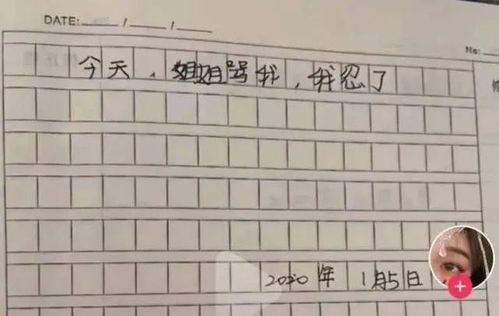 DATE: / /
No:
今天，姐姐骂我，我忍了
2020年 1月5日